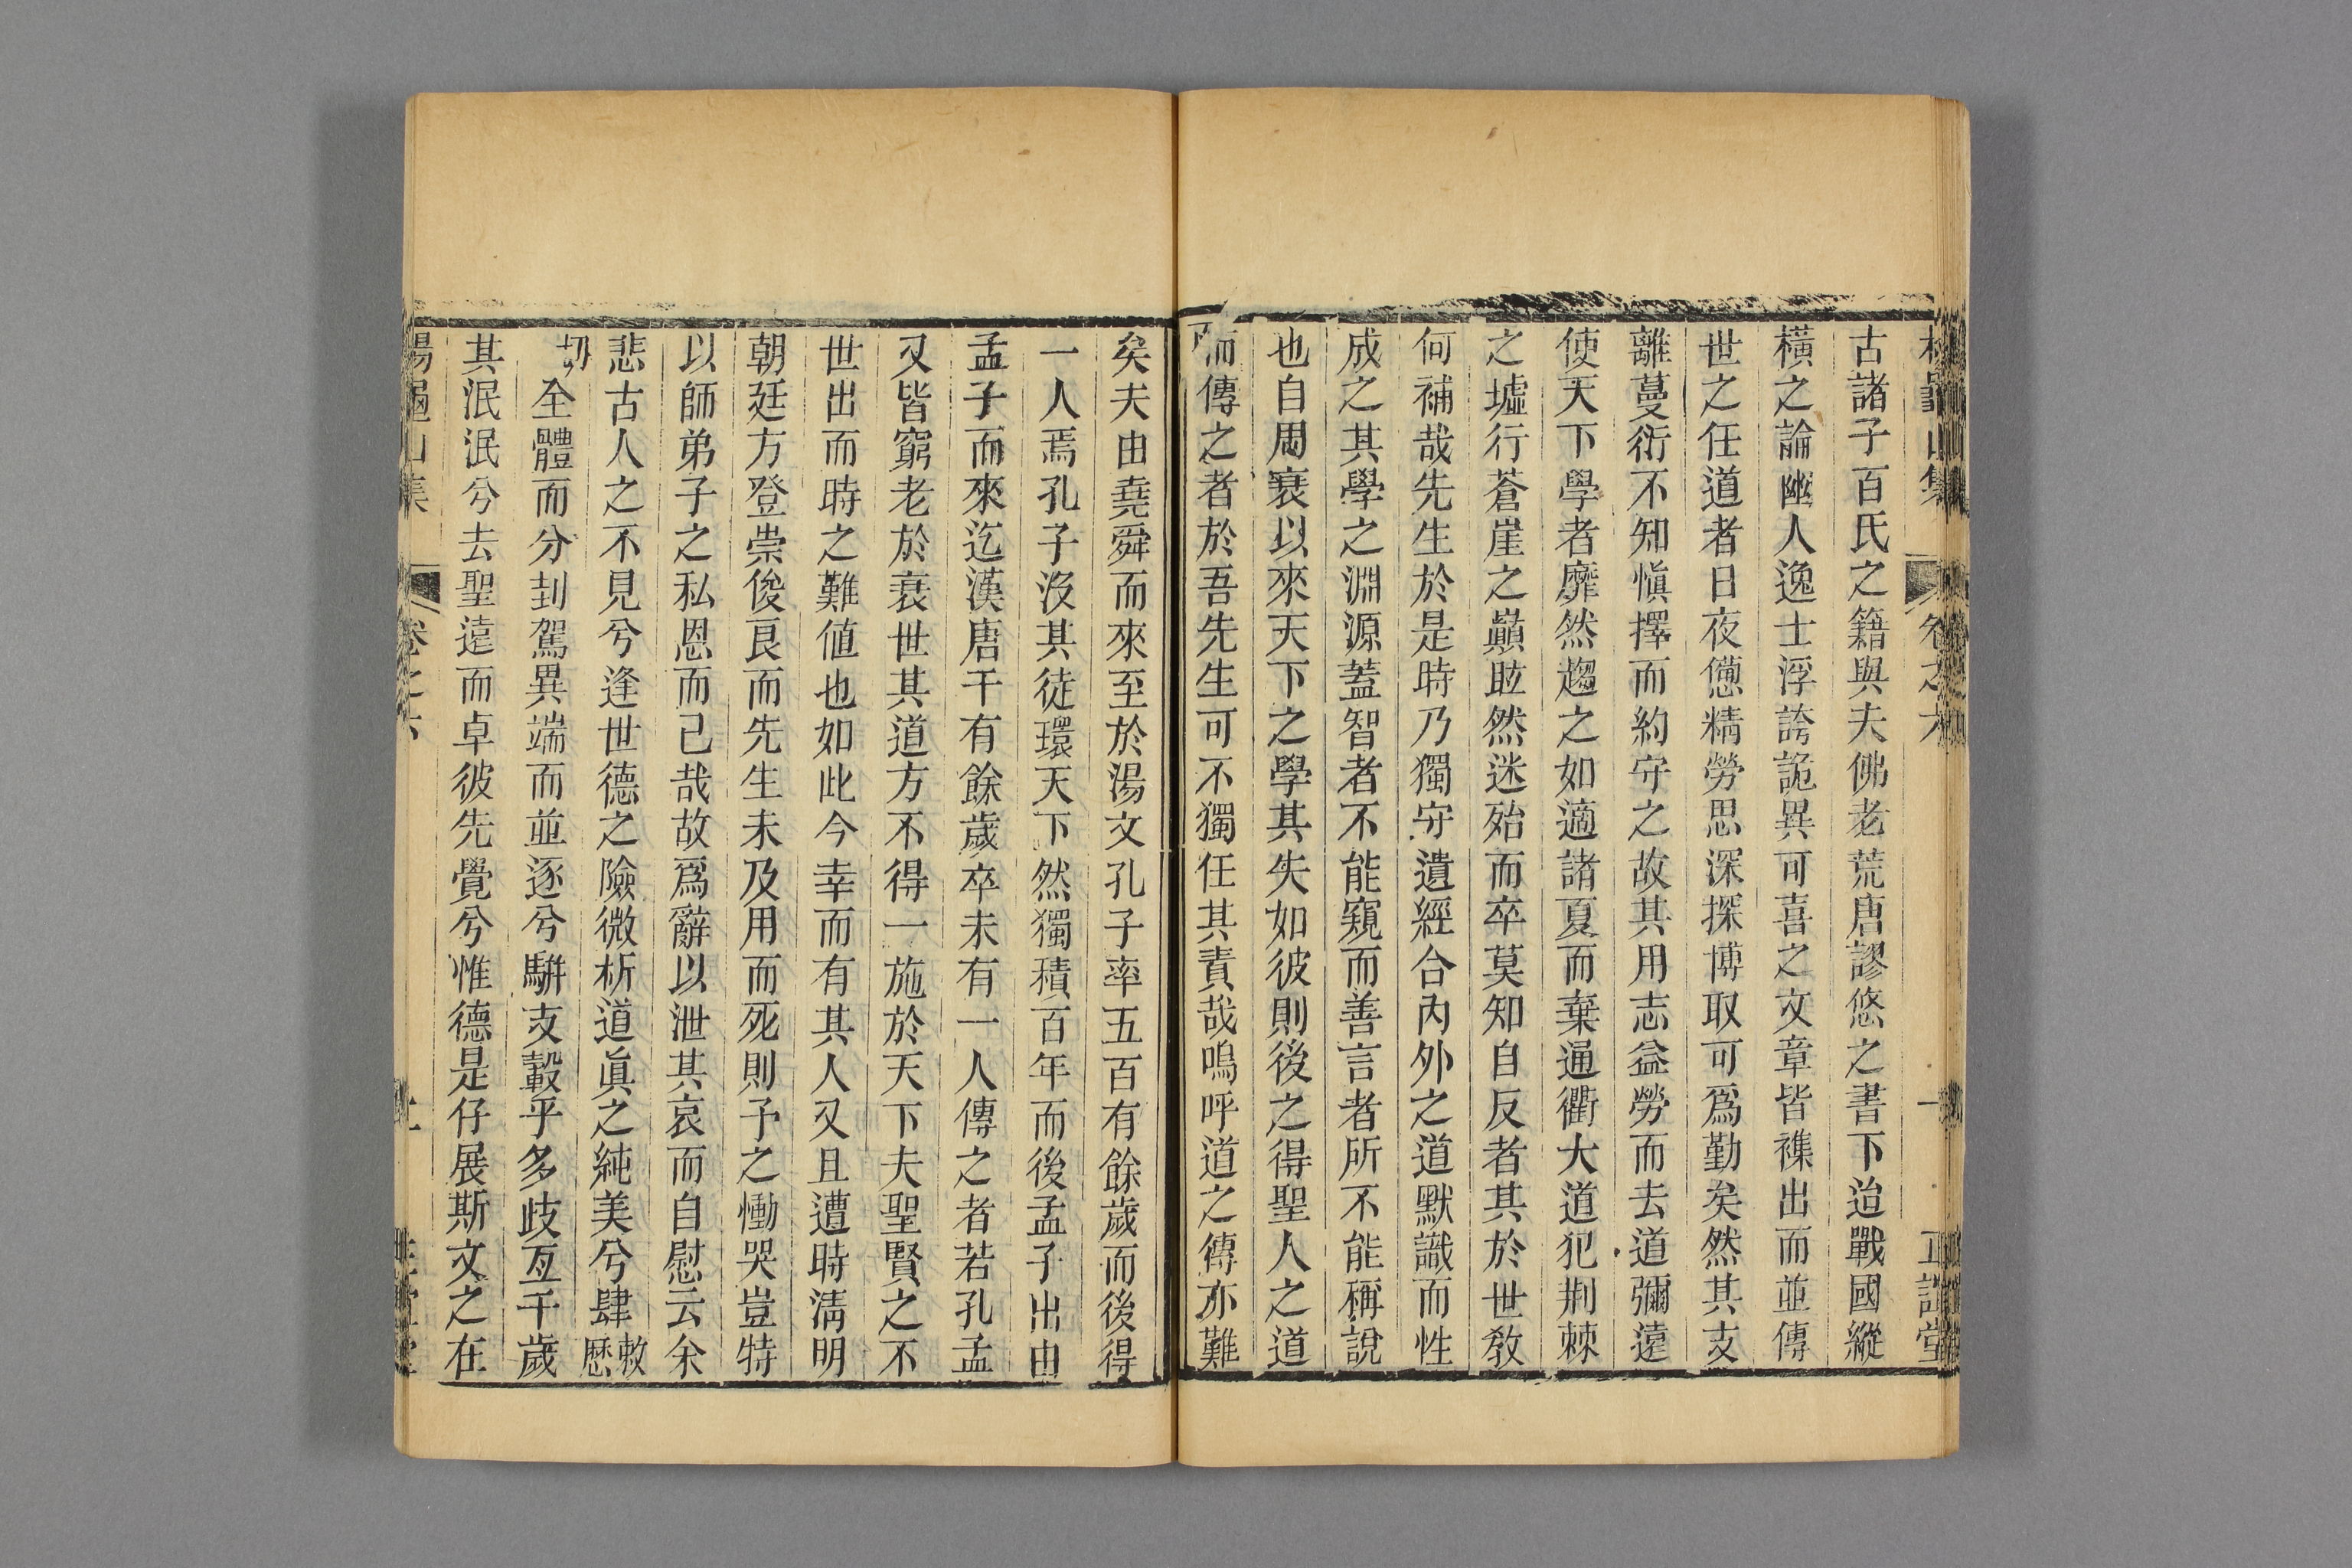 楊龜山集 卷之六 正誼堂
古諸子百氏之籍與夫佛老荒唐謬悠之書下迨戰國縱
橫之論幽人逸士浮誇詭異可喜之文章皆襍出而並傳
世之任道者日夜憊精勞思深探博取可爲勤矣然其支
離蔓衍不知愼擇而約守之故其用志益勞而去道彌遠
使天下學者靡然趨之如適諸夏而棄通衢大道犯荆棘
之墟行蒼崖之巔眩然迷殆而卒莫知自反者其於世敎
何補哉先生於是時乃獨守遺經合內外之道默識而性
成之其學之淵源蓋智者不能窺而善言者所不能稱說
也自周衰以來天下之學其失如彼則後之得聖人之道
而傳之者於吾先生可不獨任其責哉嗚呼道之傳亦難
矣夫由堯舜而來至於湯文孔子率五百有餘歲而後得
一人焉孔子沒其徒環天下然獨積百年而後孟子出由
孟子而來迄漢唐千有餘歲卒未有一人傳之者若孔孟
又皆窮老於衰世其道方不得一施於天下夫聖賢之不
世出而時之難値也如此今幸而有其人又且遭時淸明
朝廷方登崇俊良而先生未及用而死則予之慟哭豈特
以師弟子之私恩而已哉故爲辭以泄其哀而自慰云余
悲古人之不見兮逢世德之險微析道眞之純美兮肆敕歷
切全體而分刲駕異端而並逐兮騈支轂乎多歧亙千歲
其泯泯兮去聖遠而卓彼先覺兮惟德是仔展斯文之在
楊龜山集 卷之六 正誼堂